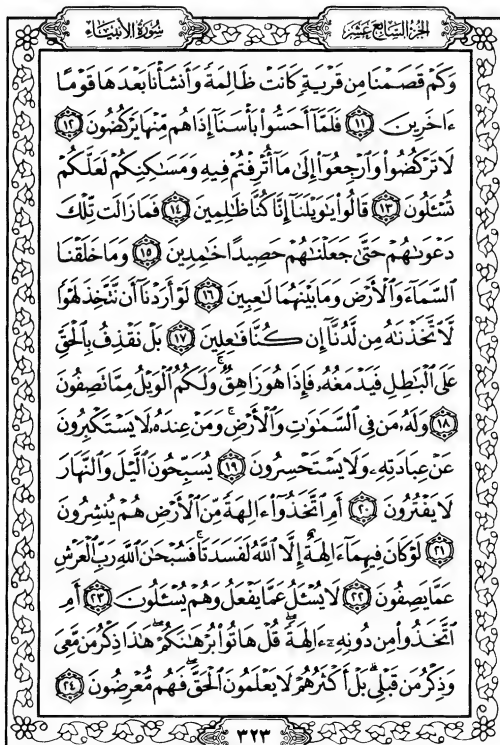 الجزء السابع عشر
سورة الأنبياء
وَكَمْ قَصَمْنَا مِن قَرْيَةٍ كَانَتْ ظَالِمَةً وَأَنشَأْنَا بَعْدَهَا قَوْمًا
ءَاخَرِينَ ﴿١١﴾ فَلَمَّآ أَحَسُّوا۟ بَأْسَنَآ إِذَا هُم مِّنْهَا يَرْكُضُونَ ﴿١٢﴾
لَا تَرْكُضُوا۟ وَٱرْجِعُوٓا۟ إِلَىٰ مَآ أُتْرِفْتُمْ فِيهِ وَمَسَـٰكِنِكُمْ لَعَلَّكُمْ
تُسْـَٔلُونَ ﴿١٣﴾ قَالُوا۟ يَـٰوَيْلَنَآ إِنَّا كُنَّا ظَـٰلِمِينَ ﴿١٤﴾ فَمَا زَالَت تِّلْكَ
دَعْوَىٰهُمْ حَتَّىٰ جَعَلْنَـٰهُمْ حَصِيدًا خَـٰمِدِينَ ﴿١٥﴾ وَمَا خَلَقْنَا
ٱلسَّمَآءَ وَٱلْأَرْضَ وَمَا بَيْنَهُمَا لَـٰعِبِينَ ﴿١٦﴾ لَوْ أَرَدْنَآ أَن نَّتَّخِذَ لَهْوًا
لَّٱتَّخَذْنَـٰهُ مِن لَّدُنَّآ إِن كُنَّا فَـٰعِلِينَ ﴿١٧﴾ بَلْ نَقْذِفُ بِٱلْحَقِّ
عَلَى ٱلْبَـٰطِلِ فَيَدْمَغُهُۥ فَإِذَا هُوَ زَاهِقٌ ۚ وَلَكُمُ ٱلْوَيْلُ مِمَّا تَصِفُونَ
﴿١٨﴾ وَلَهُۥ مَن فِى ٱلسَّمَـٰوَٰتِ وَٱلْأَرْضِ ۚ وَمَنْ عِندَهُۥ لَا يَسْتَكْبِرُونَ
عَنْ عِبَادَتِهِۦ وَلَا يَسْتَحْسِرُونَ ﴿١٩﴾ يُسَبِّحُونَ ٱلَّيْلَ وَٱلنَّهَارَ
لَا يَفْتُرُونَ ﴿٢٠﴾ أَمِ ٱتَّخَذُوٓا۟ ءَالِهَةً مِّنَ ٱلْأَرْضِ هُمْ يُنشِرُونَ
﴿٢١﴾ لَوْ كَانَ فِيهِمَآ ءَالِهَةٌ إِلَّا ٱللَّهُ لَفَسَدَتَا ۚ فَسُبْحَـٰنَ ٱللَّهِ رَبِّ ٱلْعَرْشِ
عَمَّا يَصِفُونَ ﴿٢٢﴾ لَا يُسْـَٔلُ عَمَّا يَفْعَلُ وَهُمْ يُسْـَٔلُونَ ﴿٢٣﴾ أَمِ
ٱتَّخَذُوا۟ مِن دُونِهِۦٓ ءَالِهَةً ۖ قُلْ هَاتُوا۟ بُرْهَـٰنَكُمْ ۖ هَـٰذَا ذِكْرُ مَن مَّعِىَ
وَذِكْرُ مَن قَبْلِى ۗ بَلْ أَكْثَرُهُمْ لَا يَعْلَمُونَ ٱلْحَقَّ ۖ فَهُم مُّعْرِضُونَ ﴿٢٤﴾
٣٢٣